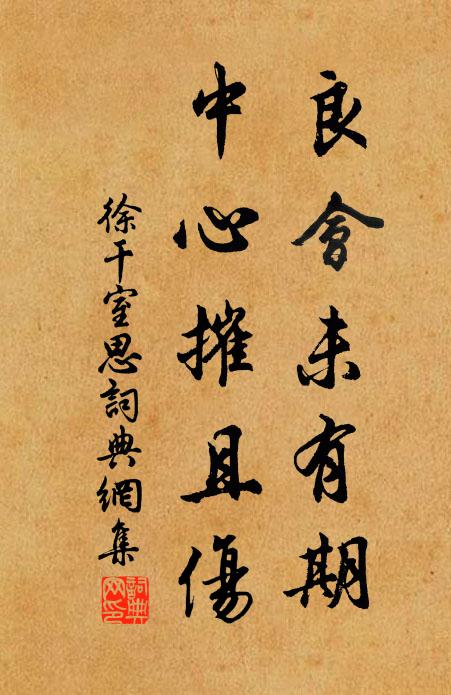 良會未有期
中心摧且傷
徐干室思詞典網集
詞典网印